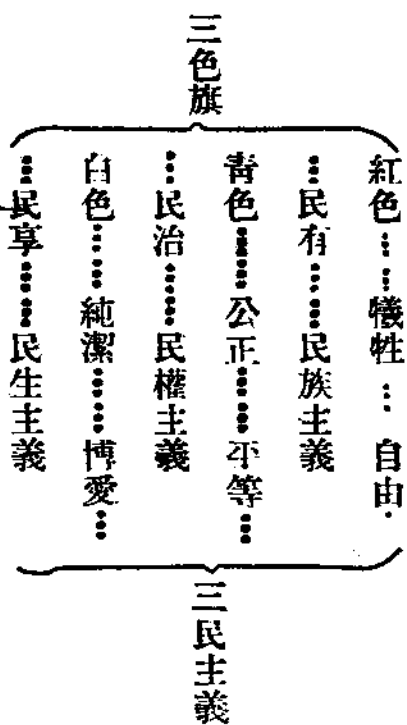 三色旗
紅色……犧牲…自由·
…民有……民族主義
青色……公正……平等…
…民治……民權主義
白色……純潔……博愛…
…民享……民生主義
三民主義